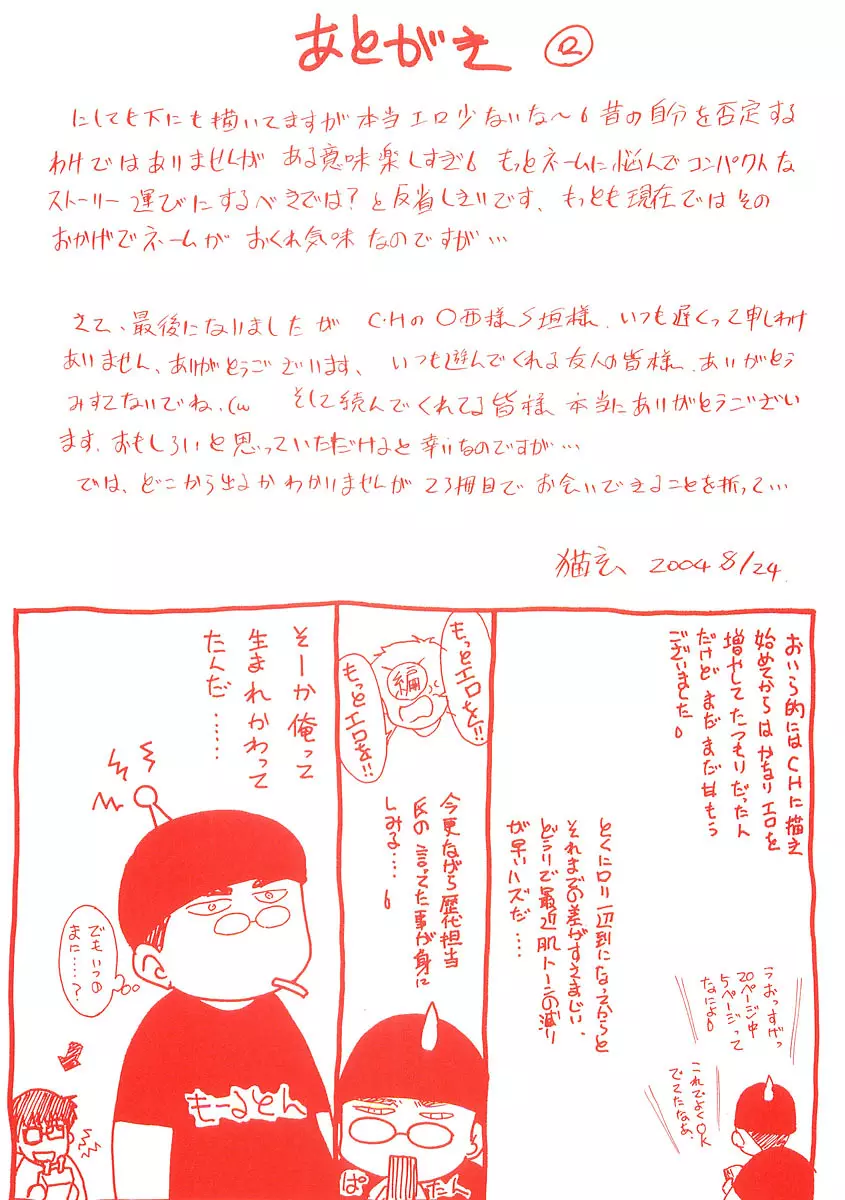 あとがき ②
にしても下にも描いてますが本当エロ少ないな～。昔の自分を否定する
わけではありませんが ある意味楽しすぎ。もっとネームに悩んでコンパクトな
ストーリー運びにするべきでは？と反省しきりです、もっとも現在ではその
おかげでネームが おくれ気味なのですが…
さて、最後になりましたが C・Hの〇西様 S垣様、いつも遅くって申しわけ
ありません、ありがとうございます、いつも遊んでくれる友人の皆様、ありがとう
みすてないでね、(ω そして読んでくれてる皆様 本当にありがとうござい
ます、おもしろいと思っていただけると幸いなのですが…
では、どこから出るかわかりませんが 23冊目で お会いできることを祈って…
猫玄 2004 8/24
おいら的にはCHに描き
始めてからは かなりエロを
増やしてたつもりだったん
だけど まだまだ甘もう
ございました。
うおっすげっ
20ページ中
5ページって
なによ。
これでよくOK
でてたなぁ。
とくにロリ一辺到になってからと
それまでの差がすさまじい、
どうりで最近肌トーンの減り
が早いハズだ…
もっとエロを!!
編
もっとエロを!!
今更ながら歴代担当
氏の言ってた事が身に
しみる……。
ぱたん
そーか俺って
生まれかわって
たんだ……
でもいつの
まに……？
もーるとん